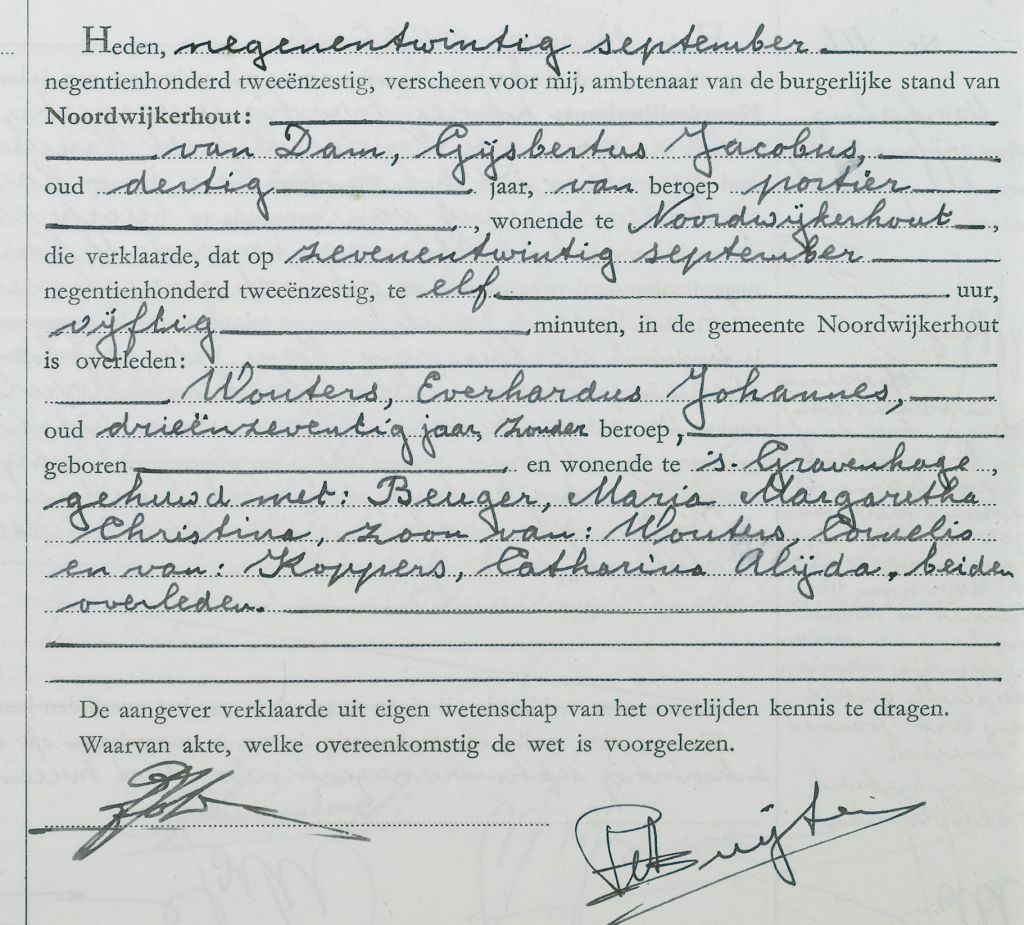 Heden, negenentwintig september
negentienhonderd tweeënzestig, verscheen voor mij, ambtenaar van de burgerlijke stand van
Noordwijkerhout:
van Dam, Gijsbertus Jacobus,
oud dertig jaar, van beroep portier
, wonende te Noordwijkerhout,
die verklaarde, dat op zevenentwintig september
negentienhonderd tweeënzestig, te elf uur,
vijftig minuten, in de gemeente Noordwijkerhout
is overleden:
Wouters, Everhardus Johannes,
oud drieënzeventig jaar, zonder beroep,
geboren en wonende te 's-Gravenhage,
gehuwd met: Beuger, Maria Margaretha
Christina, zoon van: Wouters, Cornelis
en van: Koppers, Catharina Alijda, beiden
overleden.
De aangever verklaarde uit eigen wetenschap van het overlijden kennis te dragen.
Waarvan akte, welke overeenkomstig de wet is voorgelezen.